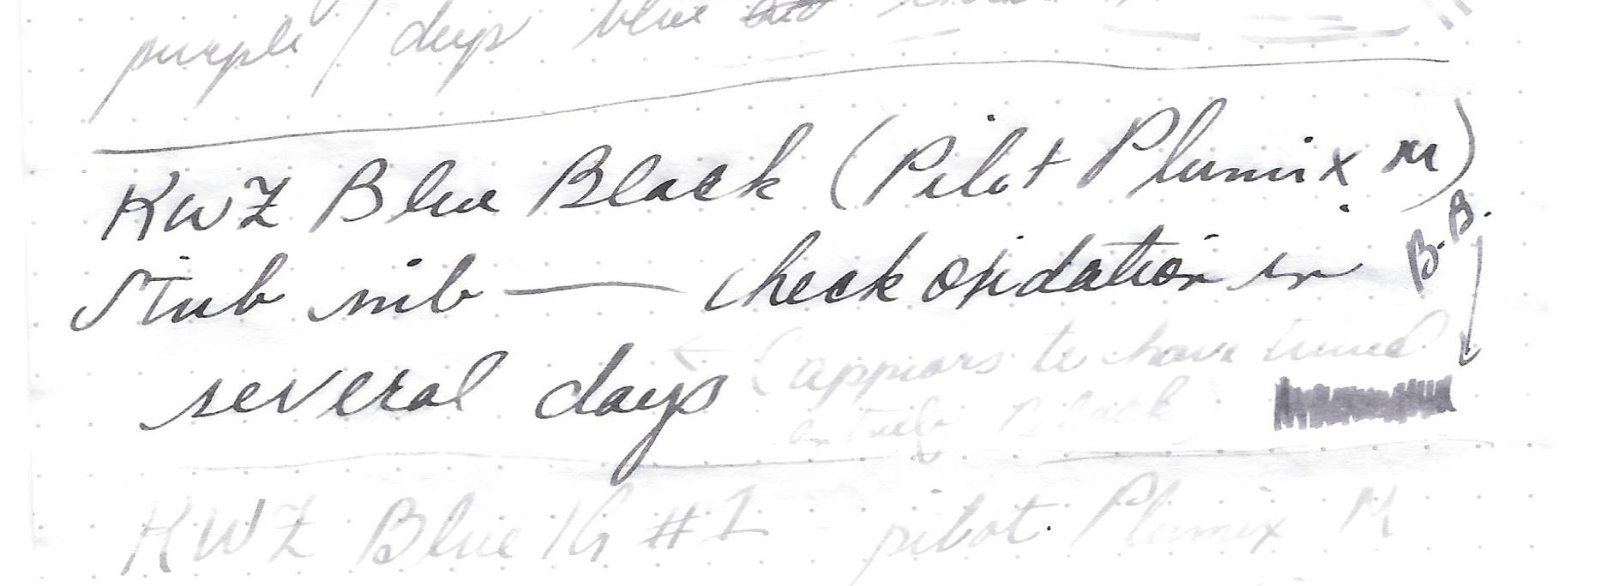 purple / deep blue
KWZ Blue Black (Pilot Plumix M)
Stub nib — check oxidation in B.B.
several days ← (appears to have turned
entirely Black)
KWZ Blue #1 pilot Plumix M